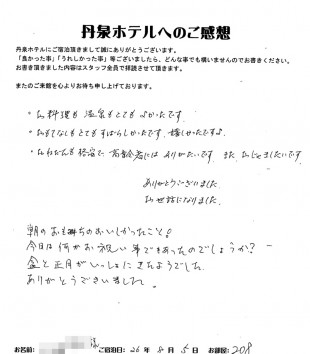 丹泉ホテルへのご感想
丹泉ホテルにご宿泊頂きまして誠にありがとうございます。
「良かった事」「うれしかった事」等ございましたら、どんな事でも構いませんのでお書きください。
お書き頂きました内容はスタッフ全員で拝読させて頂きます。
またのご来館を心よりお待ち申し上げております。
・お料理も温泉もとてもよかったです。
・おもてなしもとてもすばらしかったです、嬉しかったですよ。
・おねだんも格安で高齢者にはありがたいです また、おじゃましたいです。
ありがとうございました
お世話になりました。
朝のお もちのおいしかったこと!
今日は何かお祝い事でもあったのでしょうか?
盆と正月がいっしょにきたようでした。
ありがとうございました。
お名前: 様 ご宿泊日: 26年 8月 5日 お部屋: 208